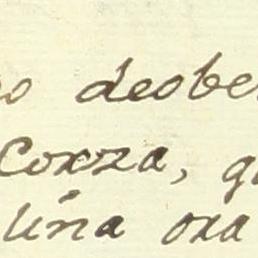 o deobe
Corza, q
lina ora